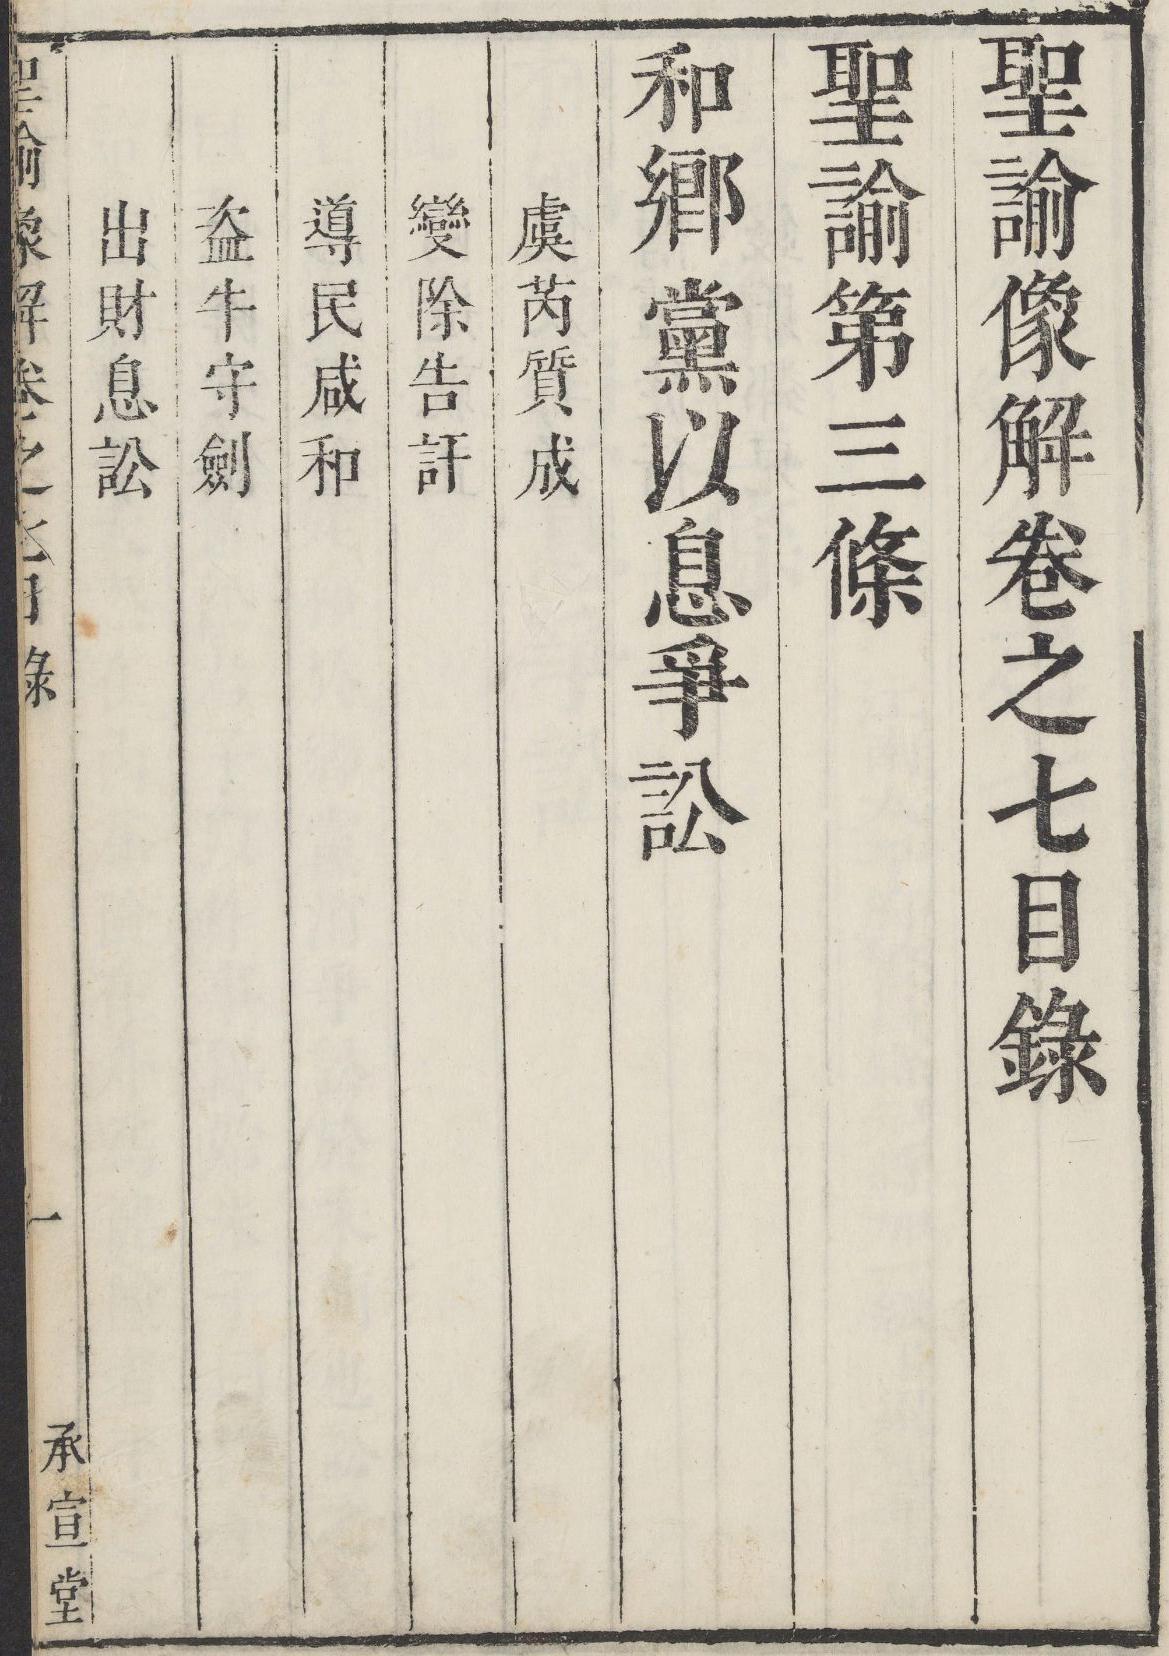 聖諭像解卷之七目錄
聖諭第三條
和鄉黨以息爭訟
虞芮質成
變除告訐
導民咸和
盜牛守劍
出財息訟
聖諭像解卷之七目錄
一
承宣堂